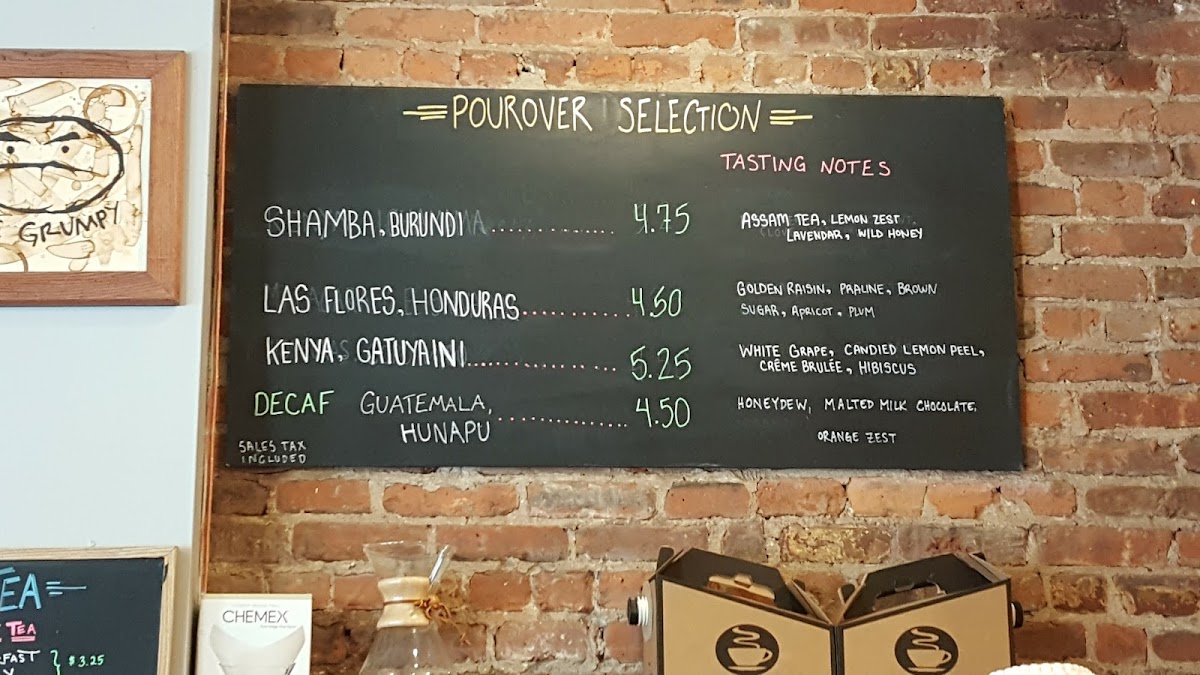 GRUMPY
POUROVER SELECTION
TASTING NOTES
SHAMBA, BURUNDI ............ 4.75
ASSAM TEA, LEMON ZEST,
LAVENDAR, WILD HONEY
LAS FLORES, HONDURAS............ 4.50
GOLDEN RAISIN, PRALINE, BROWN
SUGAR, APRICOT, PLUM
KENYA, GATUYAINI............ 5.25
WHITE GRAPE, CANDIED LEMON PEEL,
CRÊME BRULÉE, HIBISCUS
DECAF GUATEMALA,
HUNAPU ............ 4.50
HONEYDEW, MALTED MILK CHOCOLATE,
ORANGE ZEST
SALES TAX
INCLUDED
TEA
TEA
$3.25
CHEMEX